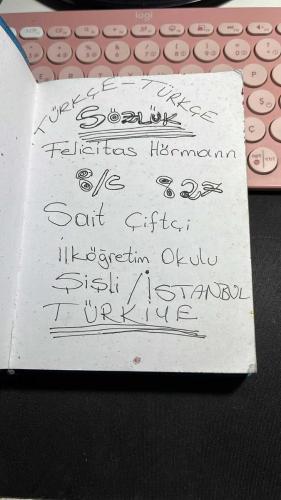 logi
TÜRKÇE-TÜRKÇE
SÖZLÜK
Felicitas Hörmann
8/C 927
Sait Çiftçi
İlköğretim Okulu
Şişli/İSTANBUL
TÜRKİYE